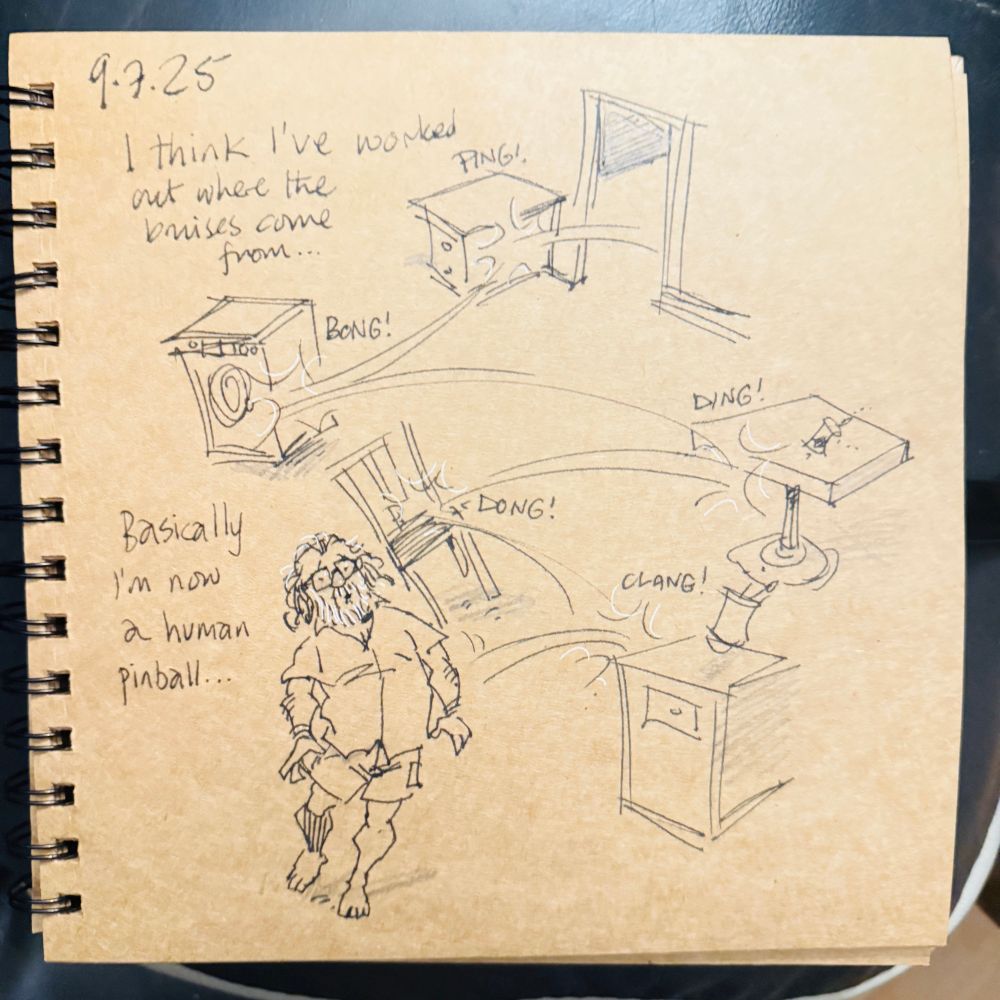 9.7.25
I think I've worked
out where the
bruises come
from...
PING!
BONG!
DING!
DONG!
CLANG!
Basically
I'm now
a human
pinball...